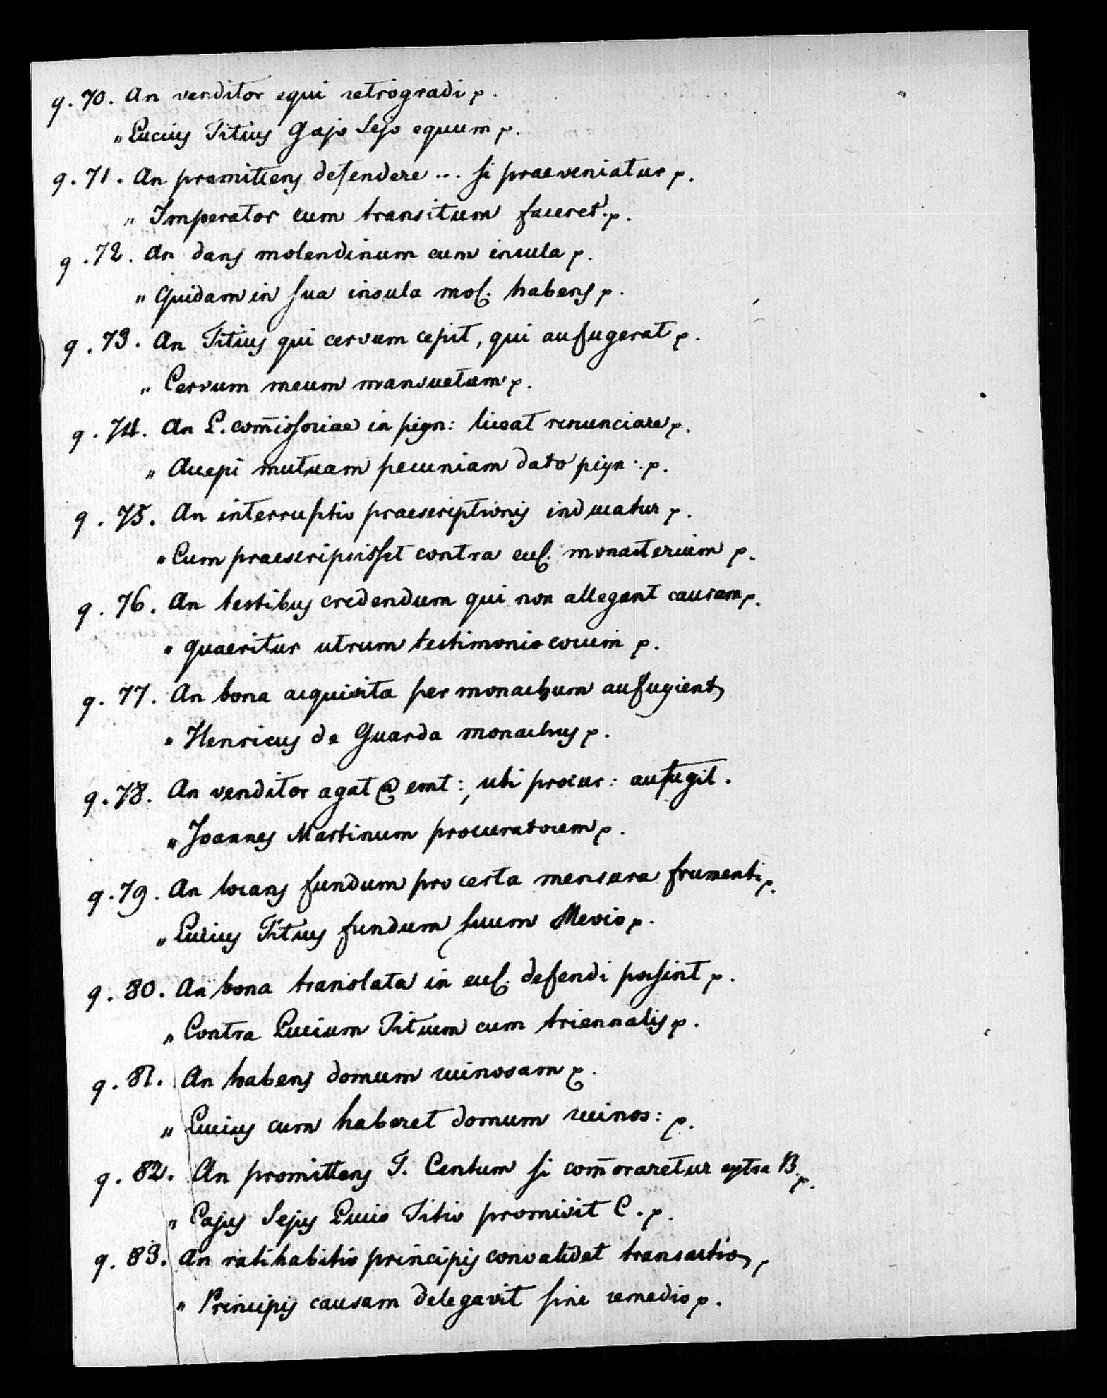 q. 70. An venditor equi retrogradi p.
" Lucius Titius Gajo Sejo equum p.
q. 71. An promittens defendere ... si praeveniatur p.
" Imperator cum transitum faceret p.
q. 72. An dans molendinum cum insula p.
" Quidam in sua insula mol. habens p.
q. 73. An Titius qui cervum cepit, qui aufugerat p.
" Cervum meum mansuetum p.
q. 74. An L. com̄issoriae in pign: liceat renunciare p.
" Accepi mutuam pecuniam dato pign: p.
q. 75. An interruptio praescriptionis inducatur p.
" Cum praescripsisset contra eccl. monasterium p.
q. 76. An testibus credendum qui non allegant causam p.
" quaeritur utrum testimonio eorum p.
q. 77. An bona acquisita per monachum aufugient,
" Henricus de Guarda monachus p.
q. 78. An venditor agat @ emt:, ubi procur: aufugit.
" Joannes Martinum procuratorem p.
q. 79. An locans fundum pro certa mensura frumenti p.
" Lucius Titius fundum suum Mevio p.
q. 80. An bona translata in eccl. defendi possint p.
" Contra Lucium Titium cum triennalis p.
q. 81. An habens domum ruinosam p.
" Lucius cum haberet domum ruinos: p.
q. 82. An promittens T. Centum si com̄oraretur extra B. p.
" Cajus Sejus Lucio Titio promisit C. p.
q. 83. An ratihabitio principis convalidet transactio,
" Principis causam delegavit sine remedio p.